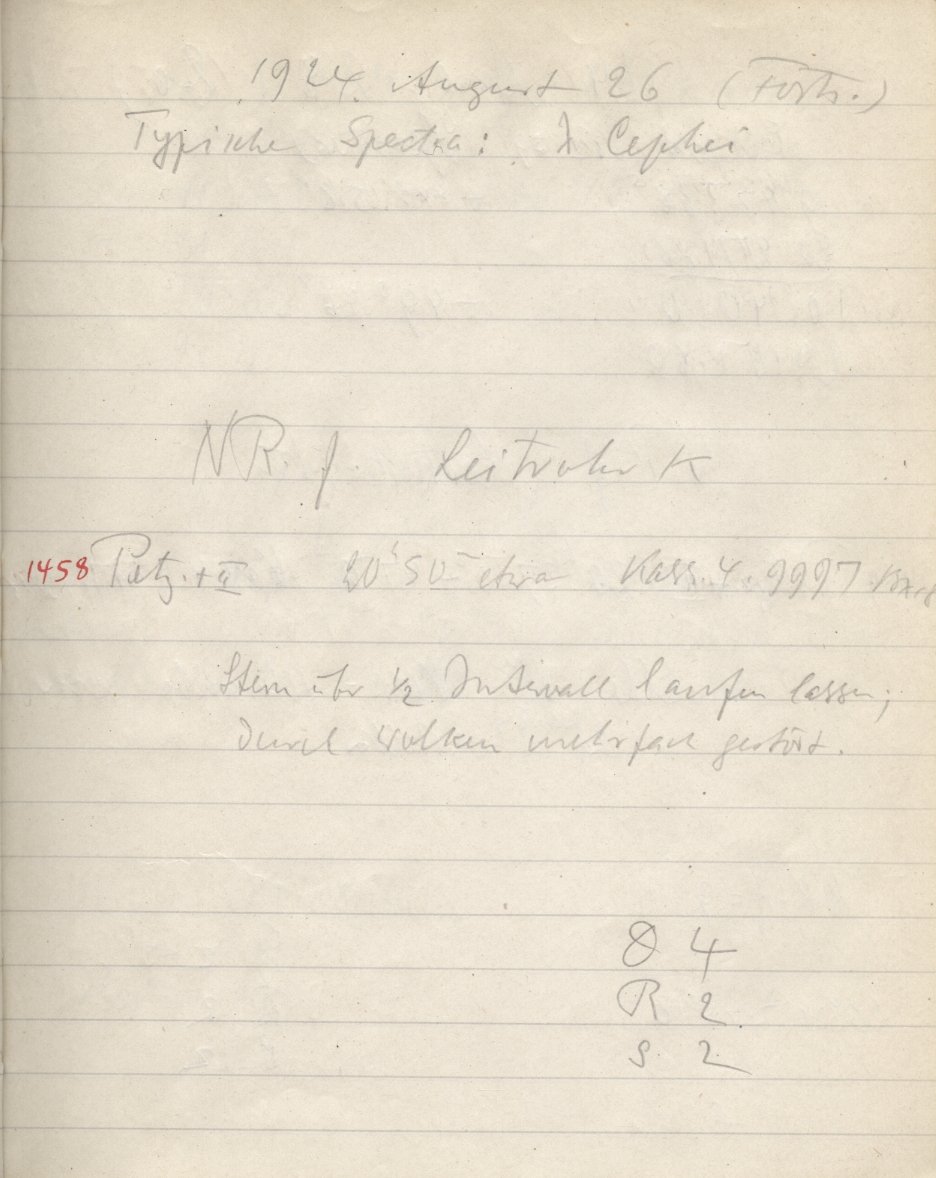 1924. August 26 (Forts.)
Typische Spectra: λ Cephei
NR. f. Leitrohr K
1458 Petz. + II 20h 50m etwa Kass. 4. 9997
Stern über ½ Intervall laufen lassen;
durch Wolken mehrfach gestört.
4
R 2
S 2